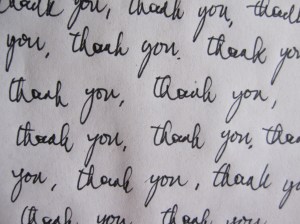 thank you, thank you, thank
you, thank you. thank you
thank you, thank you,
thank you, thank you, than
you, thank you, thank y
thank you, thank you